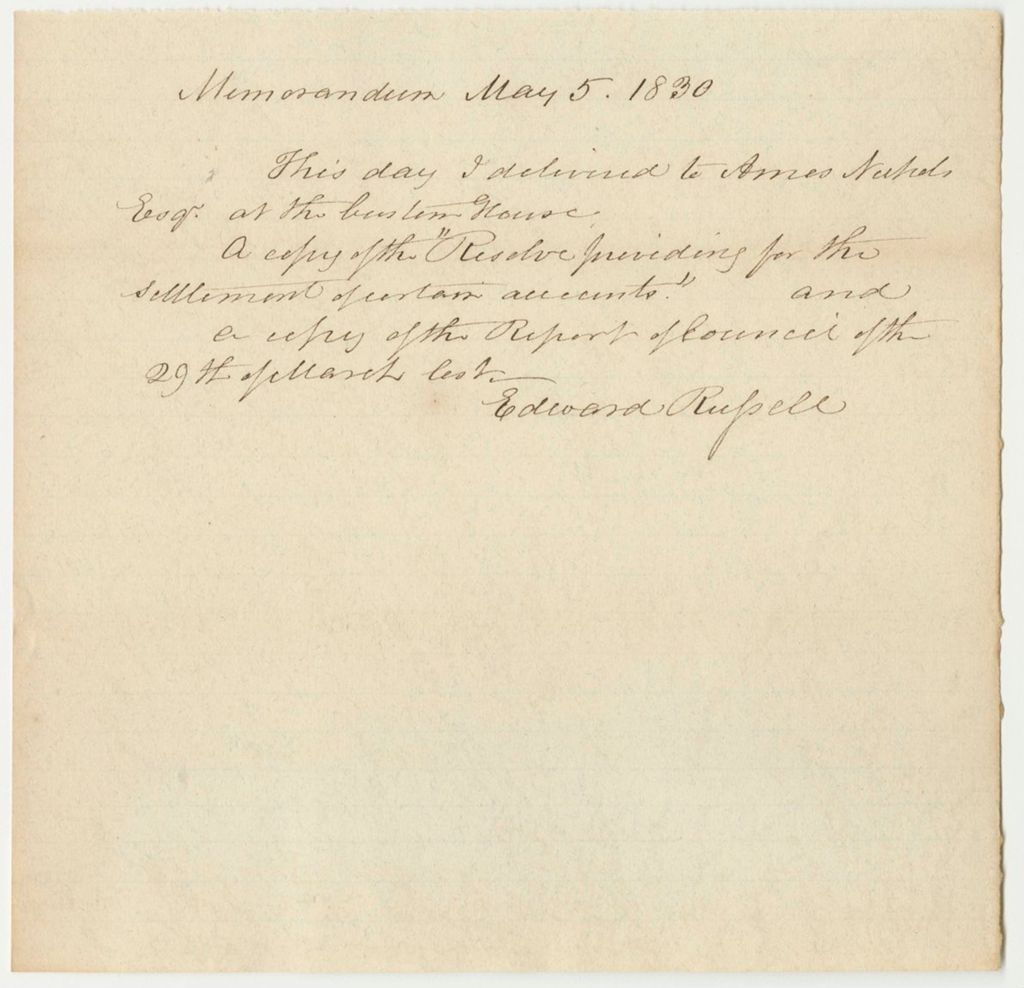 Memorandum May 5. 1830
This day I delivered to Amos Nichols
Esqr. at the Custom House,
A copy of the "Resolve providing for the
settlement of certain accounts." and
a copy of the Report of Council of the
29th of March last.
Edward Russell